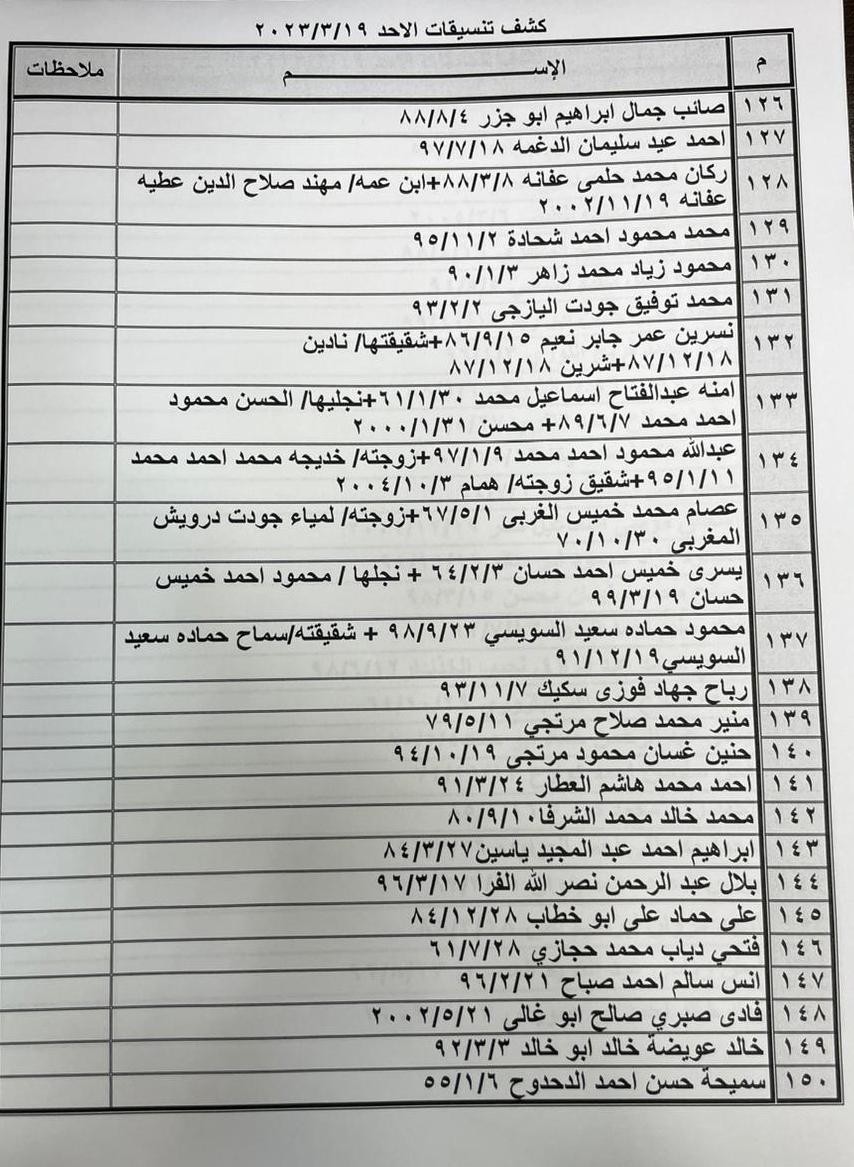 كشف تنسيقات الاحد ٢٠٢٣/٣/١٩
م الإســـــــــــــــم ملاحظات
١٢٦ صائب جمال ابراهيم ابو جزر ٨٨/٨/٤
١٢٧ احمد عيد سليمان الدغمه ٩٧/٧/١٨
١٢٨ ركان محمد حلمى عفانه ٨٨/٣/٨+ابن عمه/ مهند صلاح الدين عطيه
عفانه ٢٠٠٢/١١/١٩
١٢٩ محمد محمود احمد شحادة ٩٥/١١/٢
١٣٠ محمود زياد محمد زاهر ٩٠/١/٣
١٣١ محمد توفيق جودت اليازجى ٩٣/٢/٢
١٣٢ نسرين عمر جابر نعيم ٨٦/٩/١٥+شقيقتها/ نادين
٨٧/١٢/١٨+شرين ٨٧/١٢/١٨
١٣٣ امنه عبدالفتاح اسماعيل محمد ٦١/١/٣٠+نجليها/ الحسن محمود
احمد محمد ٨٩/٦/٧+ محسن ٢٠٠٠/١/٣١
١٣٤ عبدالله محمود احمد محمد ٩٧/١/٩+زوجته/ خديجه محمد احمد محمد
٩٥/١/١١+شقيق زوجته/ همام ٢٠٠٤/١٠/٣
١٣٥ عصام محمد خميس الغربى ٦٧/٥/١+زوجته/ لمياء جودت درويش
المغربى ٧٠/١٠/٣٠
١٣٦ يسرى خميس احمد حسان ٦٤/٢/٣ + نجلها / محمود احمد خميس
حسان ٩٩/٣/١٩
١٣٧ محمود حماده سعيد السويسي ٩٨/٩/٢٣ + شقيقته/سماح حماده سعيد
السويسي٩١/١٢/١٩
١٣٨ رباح جهاد فوزى سكيك ٩٣/١١/٧
١٣٩ منير محمد صلاح مرتجي ٧٩/٥/١١
١٤٠ حنين غسان محمود مرتجى ٩٤/١٠/١٩
١٤١ احمد محمد هاشم العطار ٩١/٣/٢٤
١٤٢ محمد خالد محمد الشرفا٨٠/٩/١٠
١٤٣ ابراهيم احمد عبد المجيد ياسين٨٤/٣/٢٧
١٤٤ بلال عبد الرحمن نصر الله الفرا ٩٦/٣/١٧
١٤٥ على حماد على ابو خطاب ٨٤/١٢/٢٨
١٤٦ فتحي دياب محمد حجازي ٦١/٧/٢٨
١٤٧ انس سالم احمد صباح ٩٦/٢/٢١
١٤٨ فادى صبري صالح ابو غالى ٢٠٠٢/٥/٢١
١٤٩ خالد عويضة خالد ابو خالد ٩٢/٣/٣
١٥٠ سميحة حسن احمد الدحدوح ٥٥/١/٦